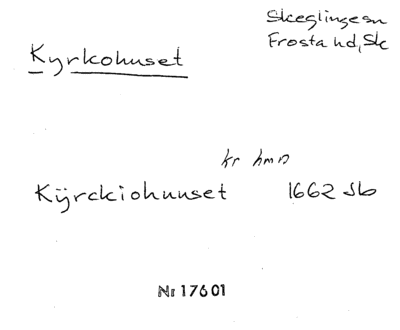 Skeglinge sn
Frosta hd, Sk
Kyrkohuset
kr hmn
Kÿrckiohuuset 1662 Jb
Nr 17601